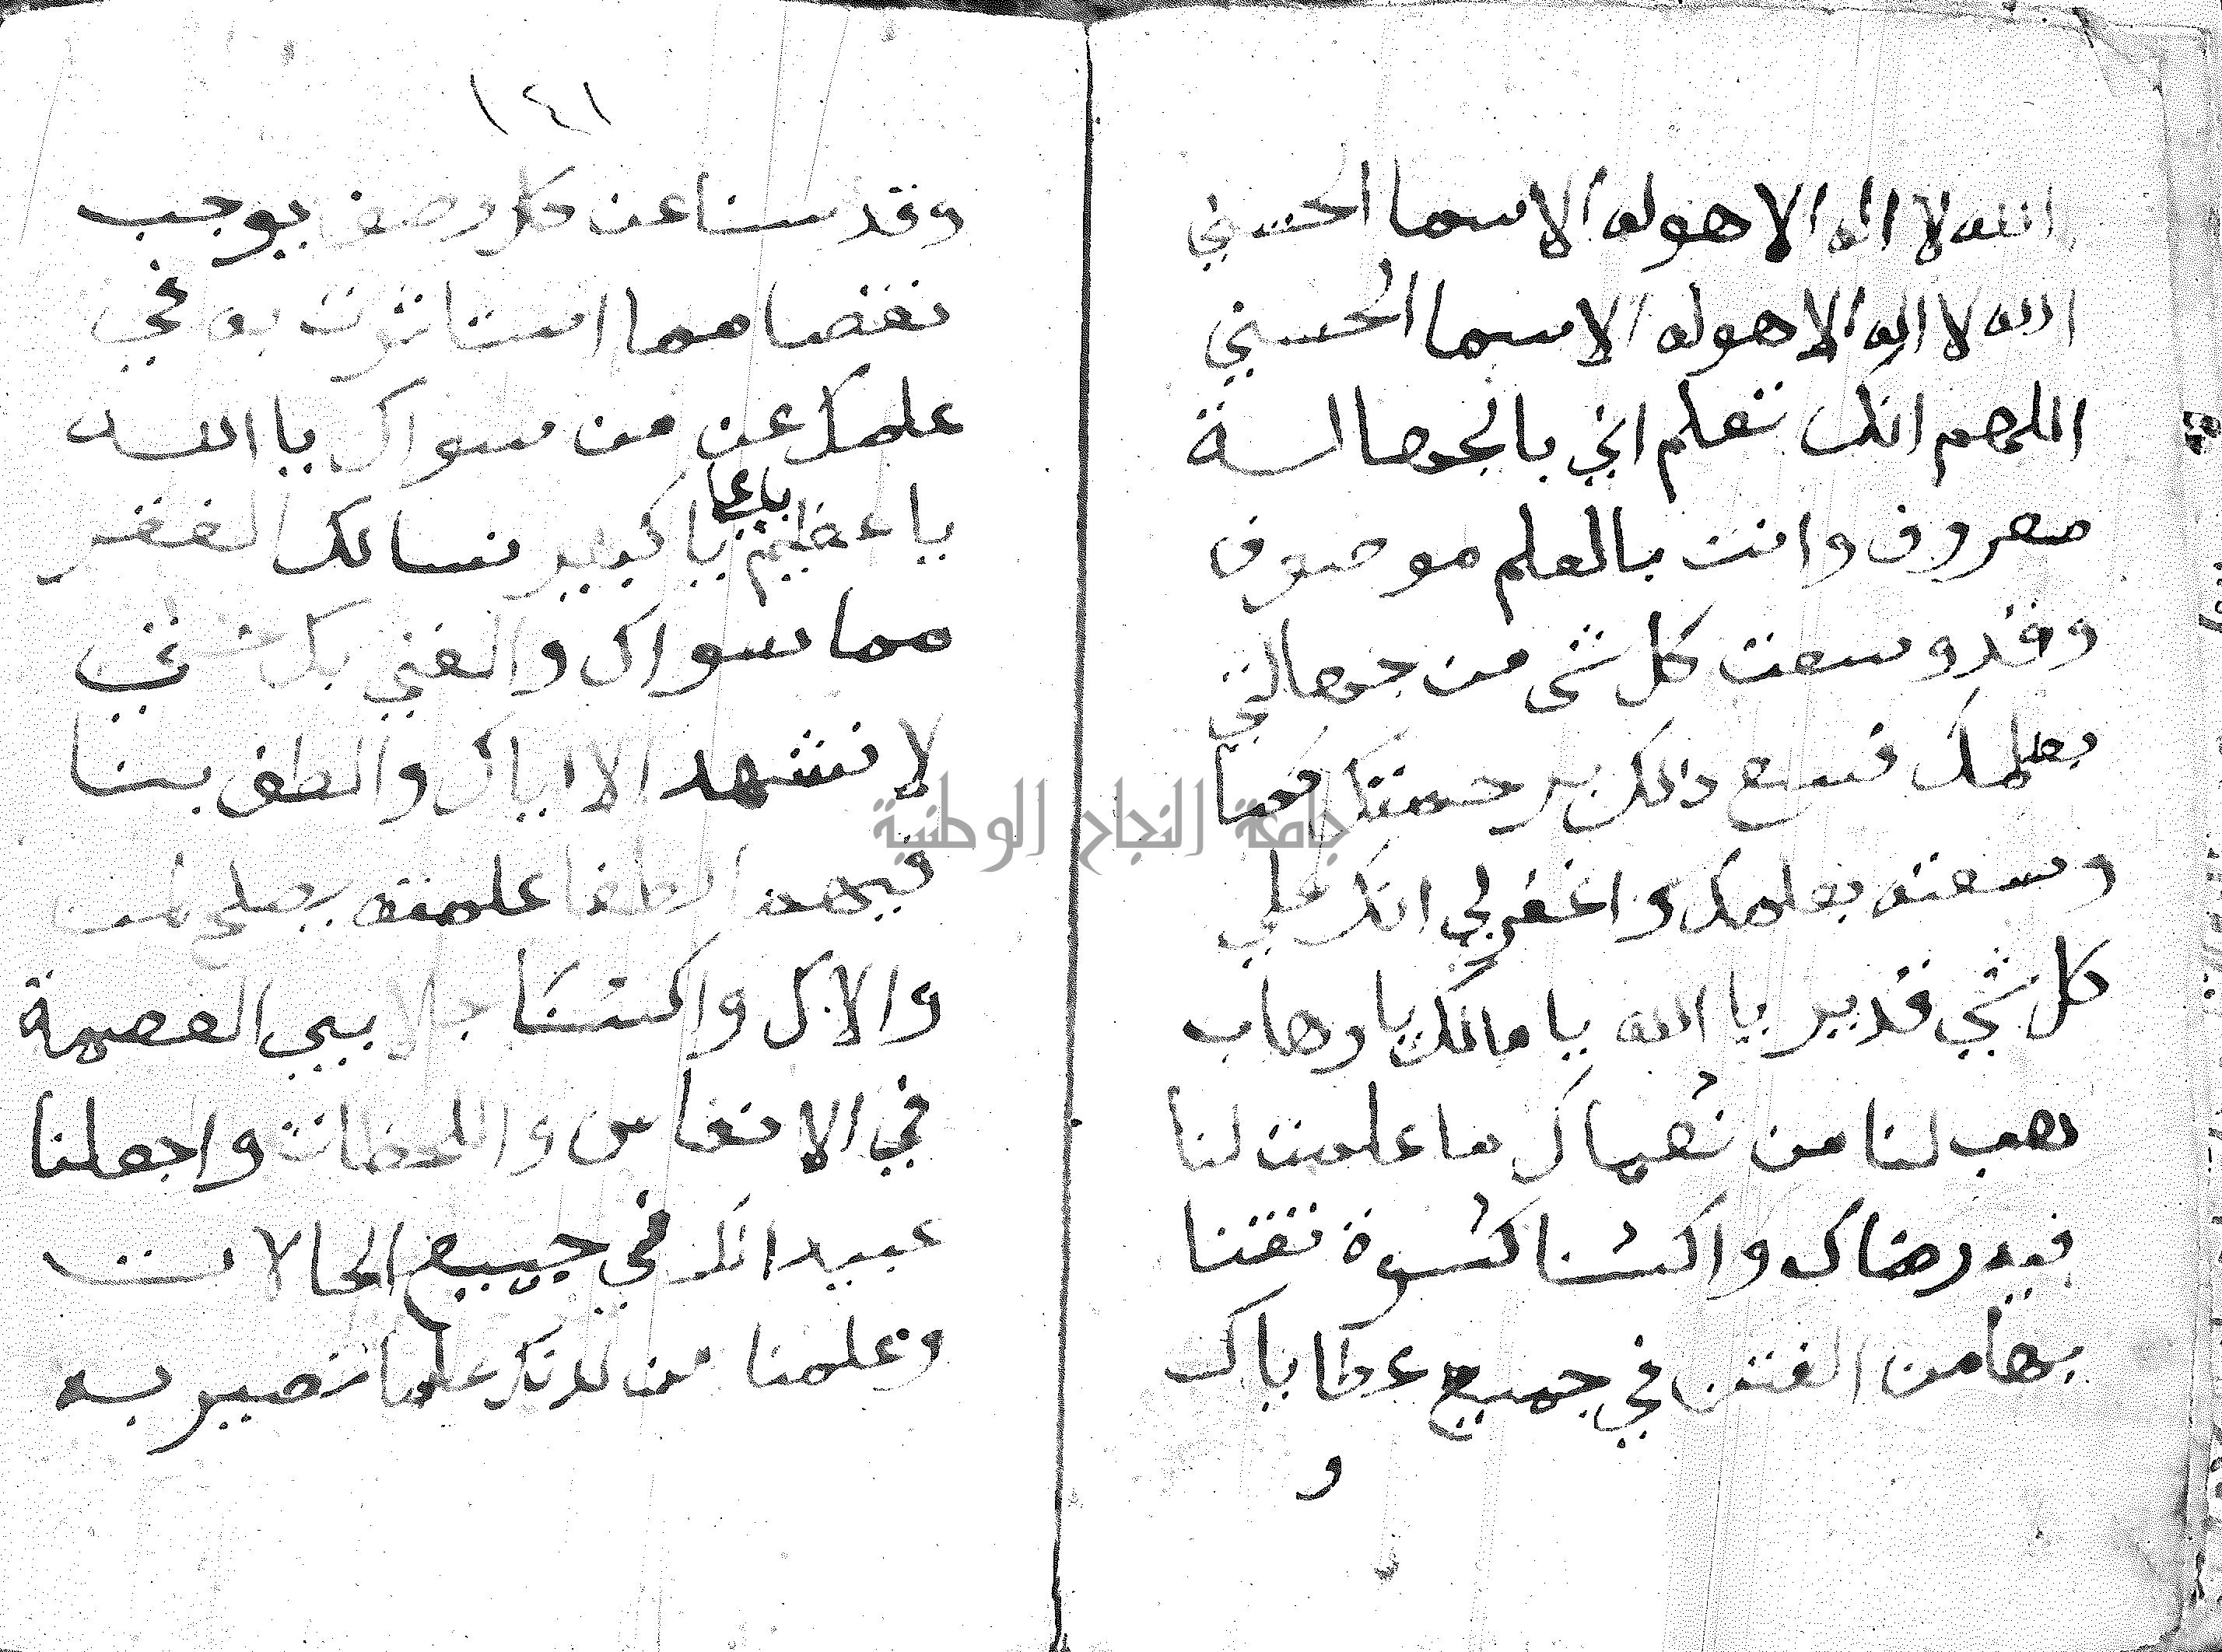 الله لا اله الا هو له الاسما الحسني
الله لا اله الا هو له الاسما الحسني
اللهم انك تعلم اني بالجهالة
معروف وانت بالعلم موصوف
وقد وسعت كل شي من جهالتي
بعلمك فسع ذالك برحمتك كما
وسعته بعلمك واغفر لي انك علي
كل شي قدير يا الله يا مالك يا وهاب
هب لنا من نعماك ما علمت لنا
فيه رضاك واكسنا كسوة تقنا
بها من الفتن في جميع عطاياك
و
١٤١
وقدسنا عن كل وصف يوجب
نقصا مما استاثرت به في
علمك عن من سواك يا الله
يا عظيم يا علي يا كبير نسالك الفقر
مما سواك والغني بك حتي
لا نشهد الا اياك والطف بنا
فيهما لطفا علمته يصلح لمن
والاك واكسنا جلابيب العصمة
في الانفاس واللحظات واجعلنا
عبيدا لك في جميع الحالات
وعلمنا من لدنك علما نصير به
جامعة النجاح الوطنية